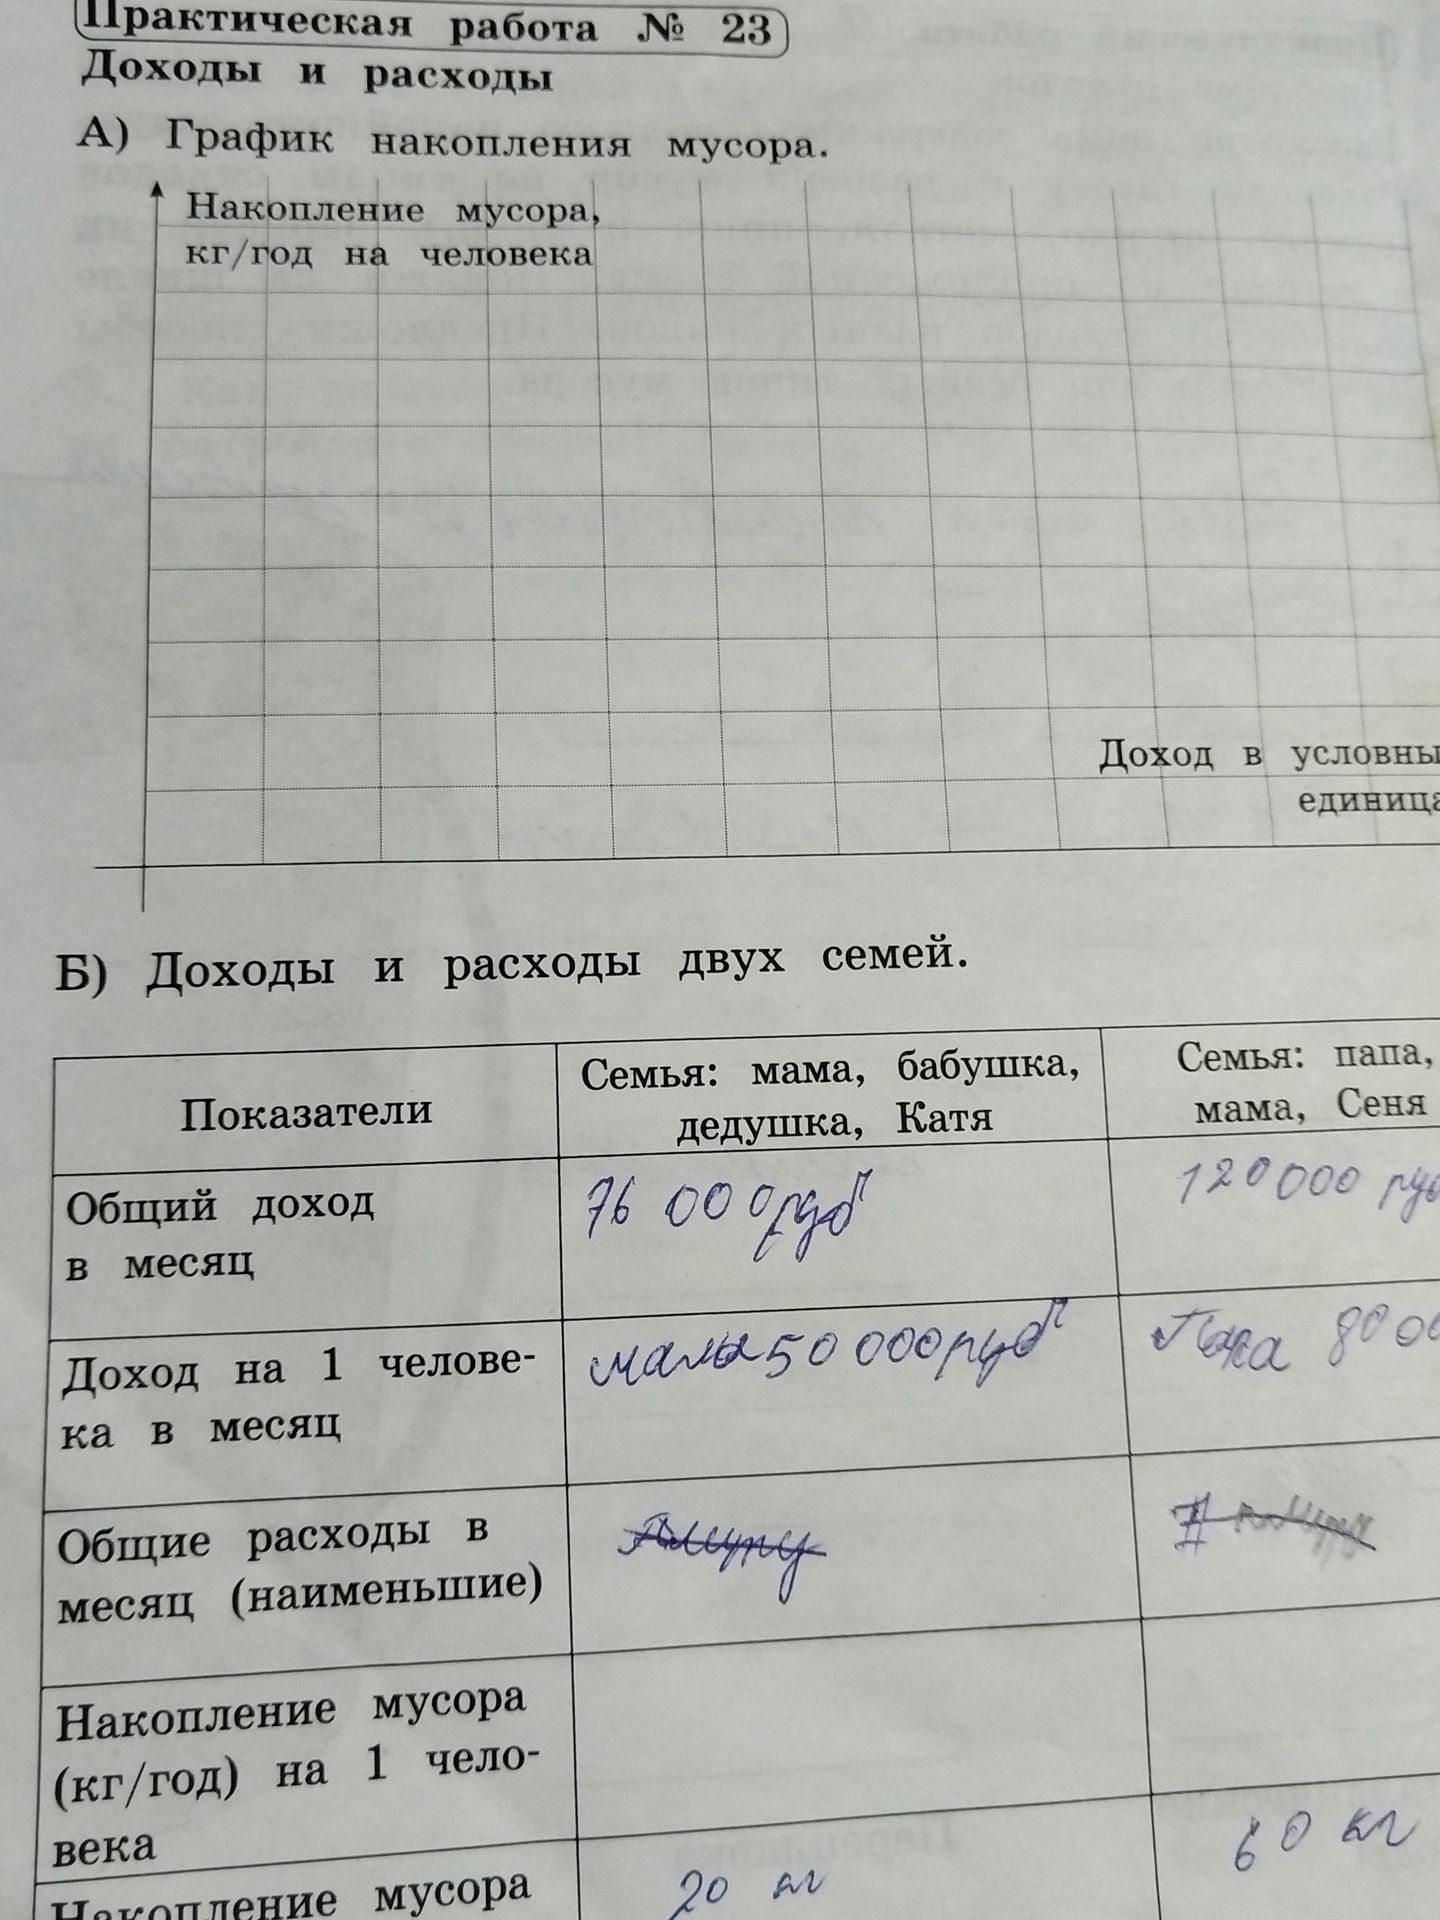 Практическая работа № 23
Доходы и расходы
А) График накопления мусора.
Накопление мусора,
кг/год на человека
Доход в условны
единица
Б) Доходы и расходы двух семей.
Показатели
Семья: мама, бабушка,
дедушка, Катя
Семья: папа,
мама, Сеня
Общий доход
в месяц
76 000 руб
120 000 руб
Доход на 1 челове-
ка в месяц
мама 50 000 руб
Папа 80 00
Общие расходы в
месяц (наименьшие)
Накопление мусора
(кг/год) на 1 чело-
века
Накопление мусора
20 кг
60 кг